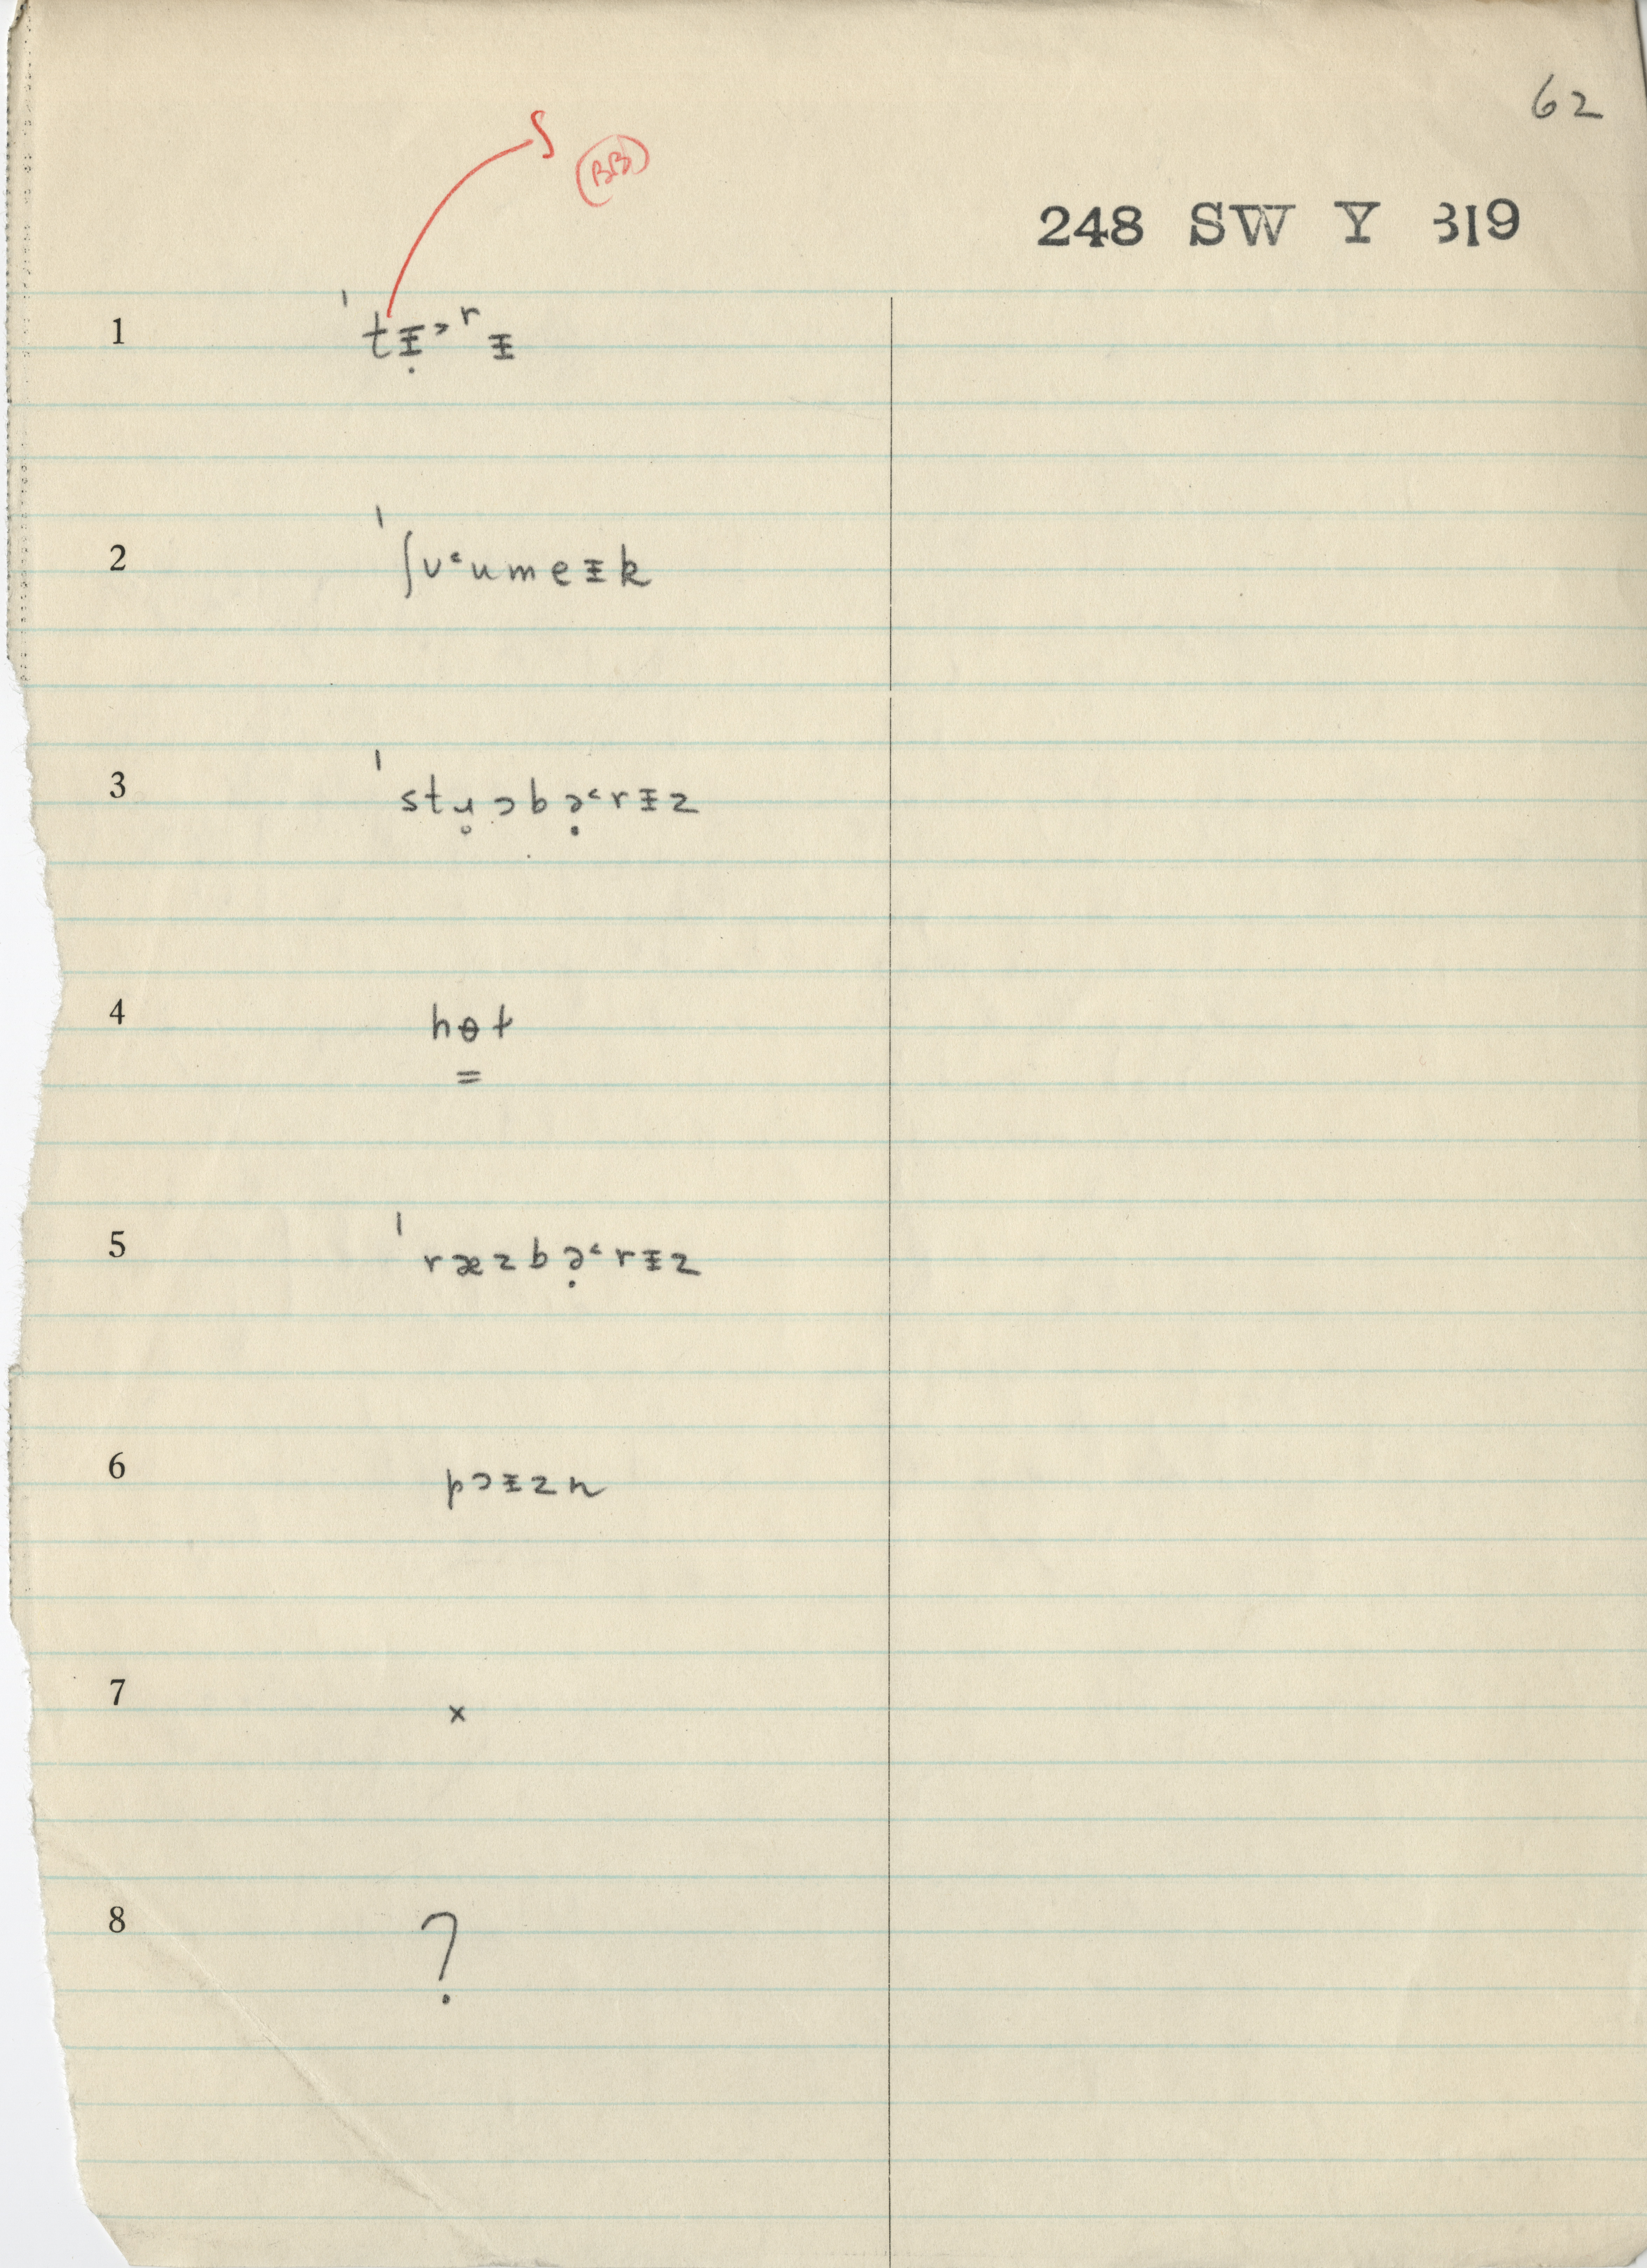 62
S (BB)
248 SW Y 319
1 ˈtɪ̵̣˃rɪ̵
2 ˈʃʊ˂umeɪ̵k
3 ˈstɹ̥ɔbə̣˂rɪ̵z
4 hɵ̳t
5 ˈræzbə̣˂rɪ̵z
6 pɔɪ̵zn
7 x
8 ?